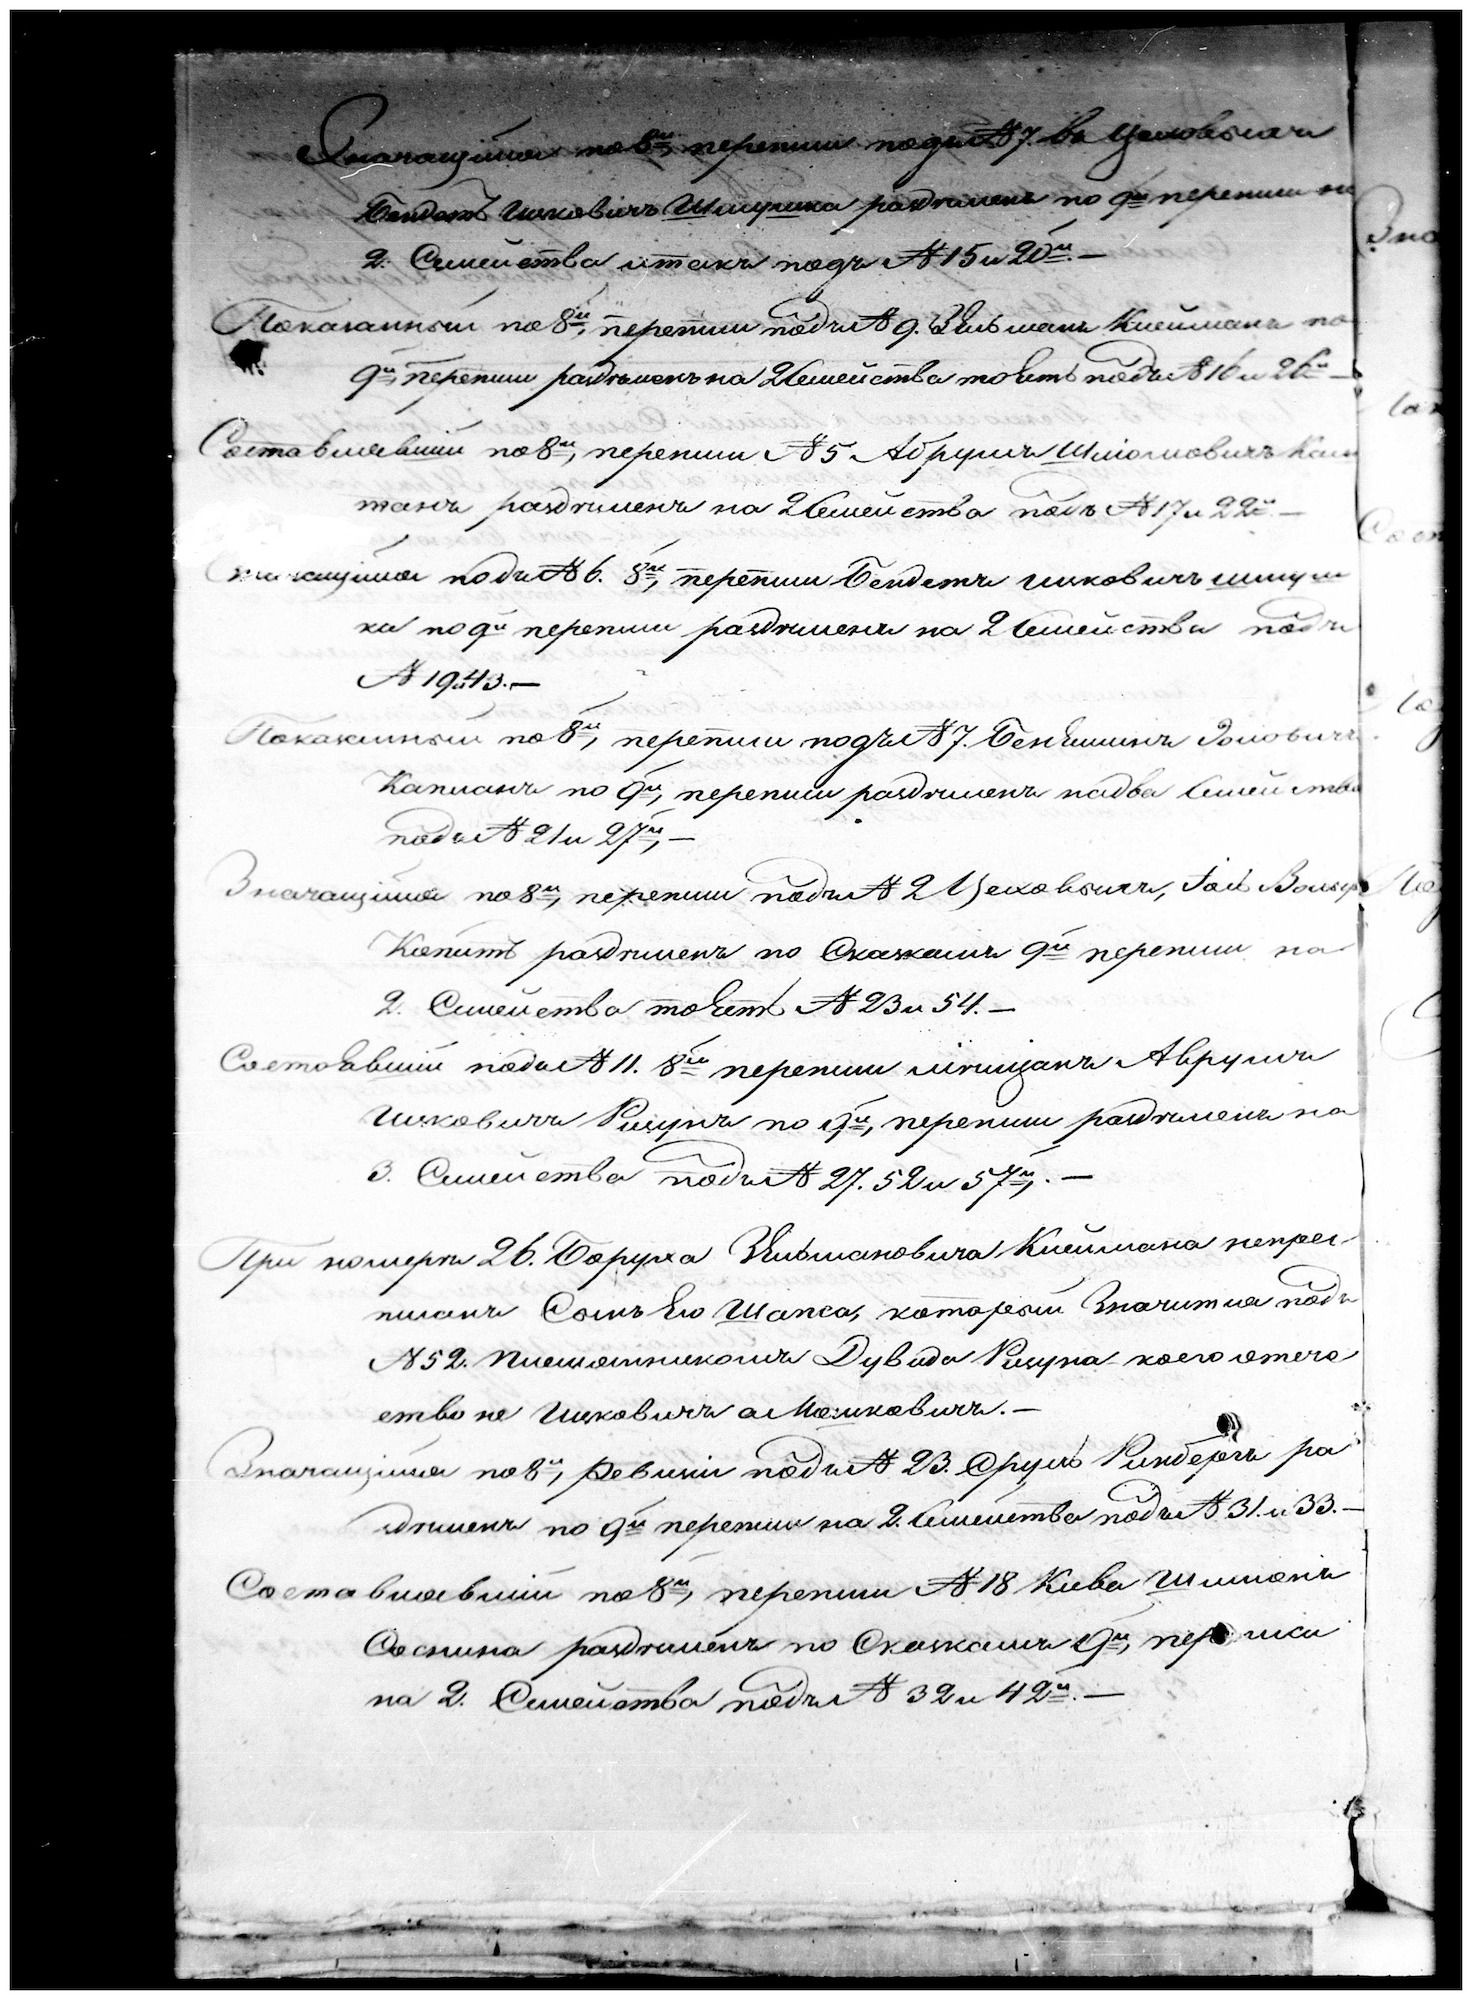 Значащійся по 8й, переписи подъ № 7. въ Цеховыхъ
Бендетъ Ицковичъ Шмушка раздѣленъ по 9й переписи на
2. Семейства итакъ подъ № 15 и 20й.—
Показанный по 8й, переписи подъ № 9. Зельманъ Клейманъ по
9й, переписи раздѣленъ на 2 Семейства тоесть подъ № 16 и 26й —
Составлявшій по 8й, переписи № 5 Абрумъ Шліомовичъ Кап
танъ раздѣленъ на 2 Семейства подъ № 17 и 22й.—
Значащійся подъ № 6. 8й, переписи Бендетъ Ицковичъ Шмуш
ка по 9й переписи раздѣленъ на 2 Семейства подъ
№ 19 и 43.—
Показанный по 8й, переписи подъ № 7. Беніяминъ Золовичъ
Капланъ по 9й, переписи раздѣленъ на два Семейства
подъ № 21 и 27й,—
Значащійся по 8й, переписи подъ № 2 Цеховыхъ,
Копитъ раздѣленъ по Сказкамъ 9й переписи на
2. Семейства тоесть № 23 и 54.—
Состоявшій подъ № 11. 8й переписи мѣщанъ Аврумъ
Ицковичъ Рицунъ по 9й, переписи раздѣленъ на
3. Семейства подъ № 27. 52 и 57й,.—
При номерѣ 26. Боруха Зельмановича Клеймана непре-
писанъ Сынъ Его Шапса, который Значится подъ
№ 52. Племянникомъ Дувида Рицуна коего отече
ство не Ицковичъ а Мошковичъ.—
Значащійся по 8й, Ревизіи подъ № 23. Срулъ Ринбергъ ра
здѣленъ по 9й переписи на 2. Семейства подъ № 31. и 33.—
Составлявшій по 8й, переписи № 18 Кива Шимонъ
Соснина раздѣленъ по Сказкамъ 9й, переписи
на 2. Семейства подъ № 32 и 42й.—